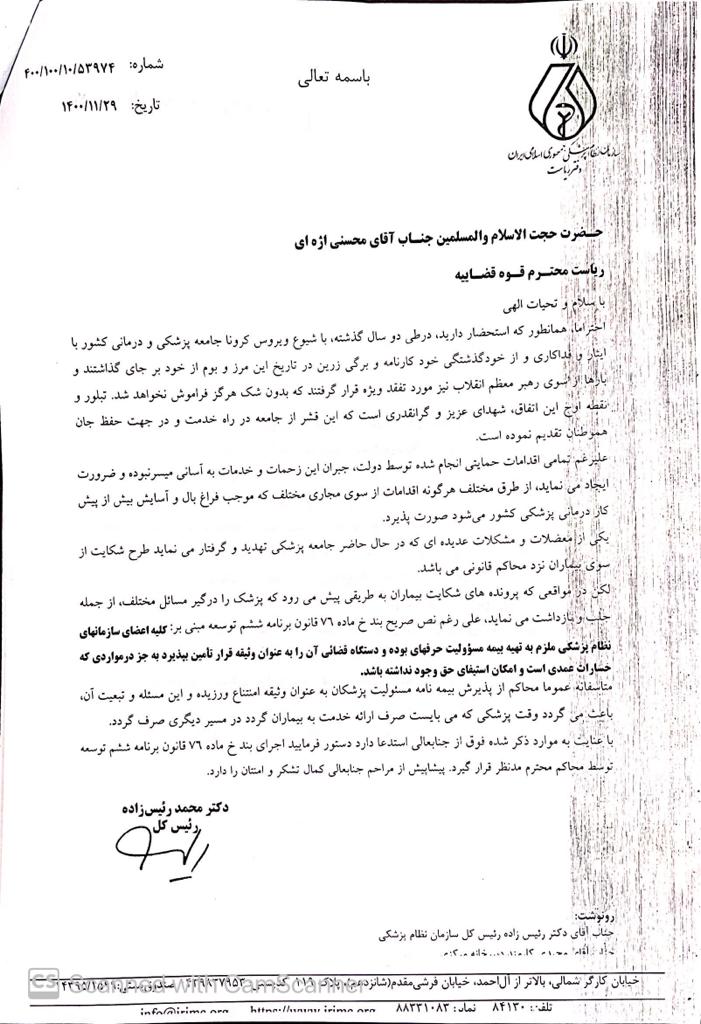 باسمه تعالی
شماره: ۴۰۰/۱۰۰/۱۰/۵۳۹۷۴
تاریخ: ۱۴۰۰/۱۱/۲۹
سازمان نظام پزشکی جمهوری اسلامی ایران
دفتر ریاست
حضرت حجت الاسلام والمسلمین جناب آقای محسنی اژه ای
ریاست محترم قوه قضاییه
با سلام و تحیات الهی
احتراما، همانطور که استحضار دارید، درطی دو سال گذشته، با شیوع ویروس کرونا جامعه پزشکی و درمانی کشور با
ایثار و فداکاری و از خودگذشتگی خود کارنامه و برگی زرین در تاریخ این مرز و بوم از خود بر جای گذاشتند و
بارها از سوی رهبر معظم انقلاب نیز مورد تفقد ویژه قرار گرفتند که بدون شک هرگز فراموش نخواهد شد. تبلور و
نقطه اوج این اتفاق، شهدای عزیز و گرانقدری است که این قشر از جامعه در راه خدمت و در جهت حفظ جان
هموطنان تقدیم نموده است.
علیرغم تمامی اقدامات حمایتی انجام شده توسط دولت، جبران این زحمات و خدمات به آسانی میسرنبوده و ضرورت
ایجاد می نماید، از طرق مختلف هرگونه اقدامات از سوی مجاری مختلف که موجب فراغ بال و آسایش بیش از پیش
کار درمانی پزشکی کشور می‌شود صورت پذیرد.
یکی از معضلات و مشکلات عدیده ای که در حال حاضر جامعه پزشکی تهدید و گرفتار می نماید طرح شکایت از
سوی بیماران نزد محاکم قانونی می باشد.
لکن در مواقعی که پرونده های شکایت بیماران به طریقی پیش می رود که پزشک را درگیر مسائل مختلف، از جمله
جلب و بازداشت می نماید، علی رغم نص صریح بند خ ماده ۷۶ قانون برنامه ششم توسعه مبنی بر: کلیه اعضای سازمانهای
نظام پزشکی ملزم به تهیه بیمه مسؤولیت حرفهای بوده و دستگاه قضائی آن را به عنوان وثیقه قرار تأمین بپذیرد به جز درمواردی که
خسارات عمدی است و امکان استیفای حق وجود نداشته باشد.
متاسفانه عموما محاکم از پذیرش بیمه نامه مسئولیت پزشکان به عنوان وثیقه امتناع ورزیده و این مسئله و تبعیت آن،
باعث می گردد وقت پزشکی که می بایست صرف ارائه خدمت به بیماران گردد در مسیر دیگری صرف گردد.
با عنایت به موارد ذکر شده فوق از جنابعالی استدعا دارد دستور فرمایید اجرای بند خ ماده ۷۶ قانون برنامه ششم توسعه
توسط محاکم محترم مدنظر قرار گیرد. پیشاپیش از مراحم جنابعالی کمال تشکر و امتنان را دارد.
دکتر محمد رئیس‌زاده
رئیس کل
رونوشت:
جناب آقای دکتر رئیس زاده رئیس کل سازمان نظام پزشکی
خیابان کارگر شمالی، بالاتر از آل‌احمد، خیابان فرشی‌مقدم(شانزدهم)، پلاک ۱۱۹
تلفن: ۸۴۱۳۰ نمابر: ۸۸۳۳۱۰۸۳ https://www.irimc.org info@irimc.org
CS Scanned with CamScanner